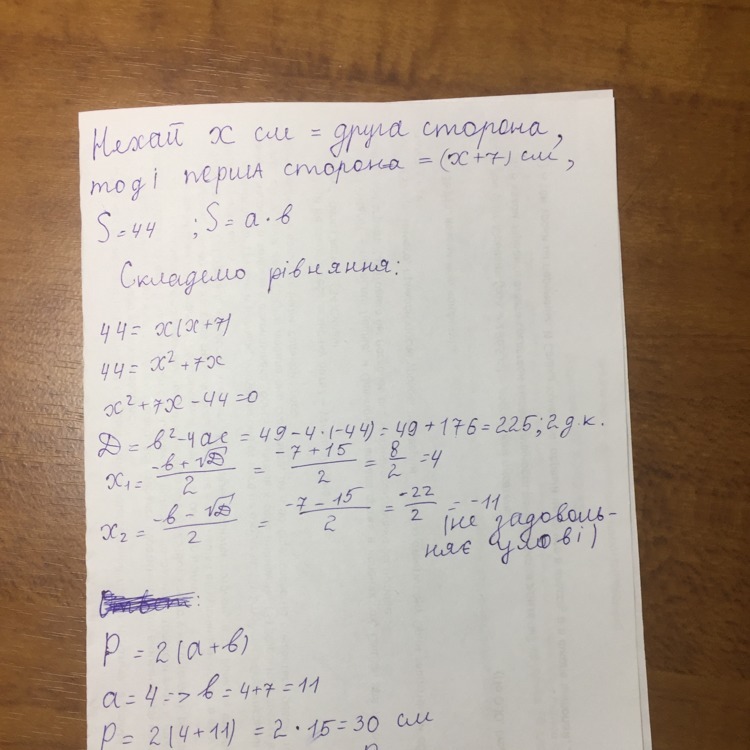 Нехай x см = друга сторона,
тоді перша сторона = (x+7) см,
S=44 ; S= a·b
Складемо рівняння:
44= x(x+7)
44= x²+7x
x²+7x-44=0
D=b²-4ac = 49-4·(-44)=49+176=225; 2 д.к.
x₁= (-b+√D)/2 = (-7+15)/2 = 8/2 =4
x₂= (-b-√D)/2 = (-7-15)/2 = -22/2 = -11
(не задоволь-
няє умові)
P = 2(a+b)
a=4 => b=4+7=11
P= 2(4+11) = 2·15=30 см